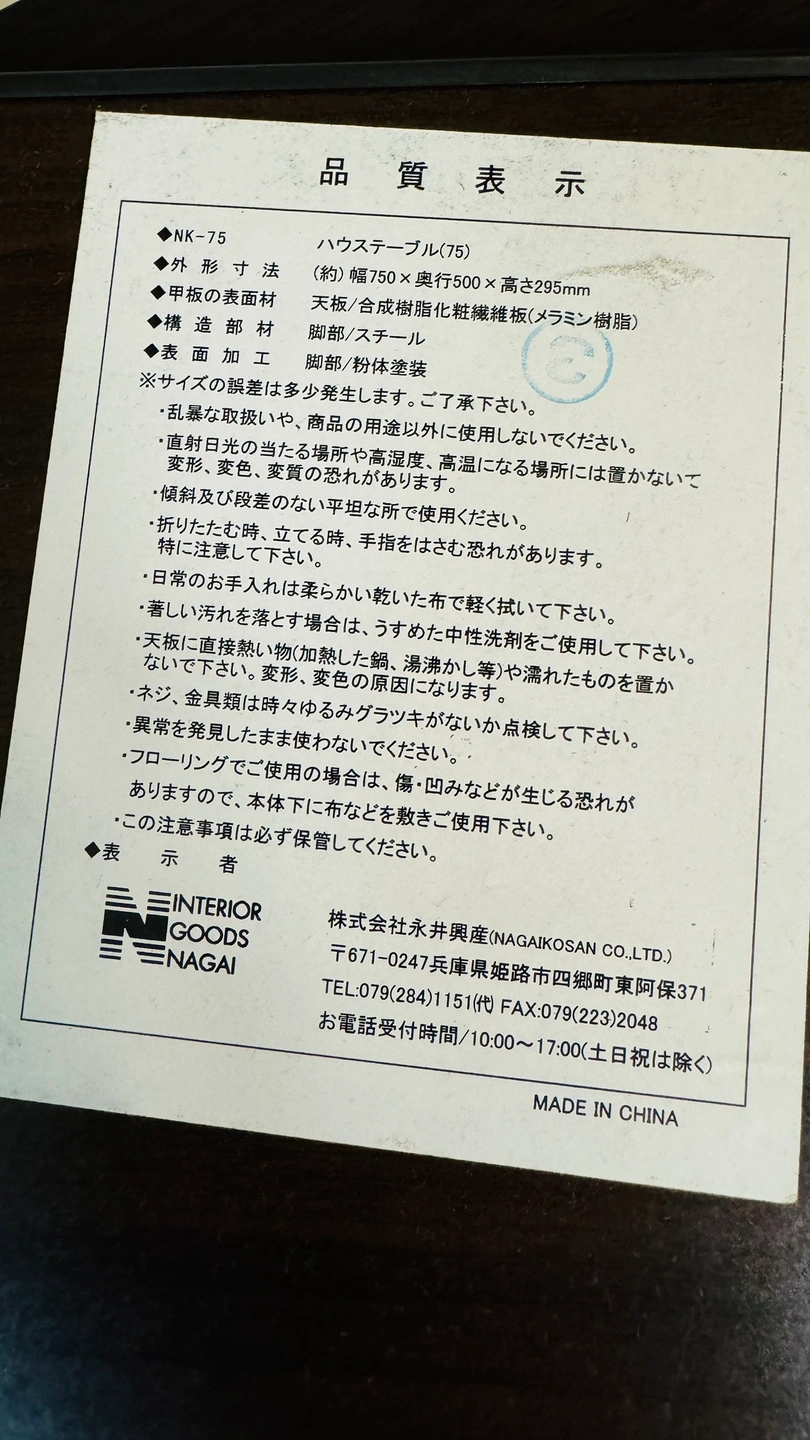 品質表示
◆NK-75 ハウステーブル(75)
◆外形寸法 (約)幅750×奥行500×高さ295mm
◆甲板の表面材 天板/合成樹脂化粧繊維板(メラミン樹脂)
◆構造部材 脚部/スチール
◆表面加工 脚部/粉体塗装
※サイズの誤差は多少発生します。ご了承下さい。
・乱暴な取扱いや、商品の用途以外に使用しないでください。
・直射日光の当たる場所や高湿度、高温になる場所には置かないて
変形、変色、変質の恐れがあります。
・傾斜及び段差のない平坦な所で使用ください。
・折りたたむ時、立てる時、手指をはさむ恐れがあります。
特に注意して下さい。
・日常のお手入れは柔らかい乾いた布で軽く拭いて下さい。
・著しい汚れを落とす場合は、うすめた中性洗剤をご使用して下さい。
・天板に直接熱い物(加熱した鍋、湯沸かし等)や濡れたものを置か
ないで下さい。変形、変色の原因になります。
・ネジ、金具類は時々ゆるみグラツキがないか点検して下さい。
・異常を発見したまま使わないでください。
・フローリングでご使用の場合は、傷・凹みなどが生じる恐れが
ありますので、本体下に布などを敷きご使用下さい。
・この注意事項は必ず保管してください。
◆表示者
N INTERIOR
GOODS
NAGAI
株式会社永井興産(NAGAIKOSAN CO.,LTD.)
〒671-0247兵庫県姫路市四郷町東阿保371
TEL:079(284)1151㈹ FAX:079(223)2048
お電話受付時間/10:00～17:00(土日祝は除く)
MADE IN CHINA